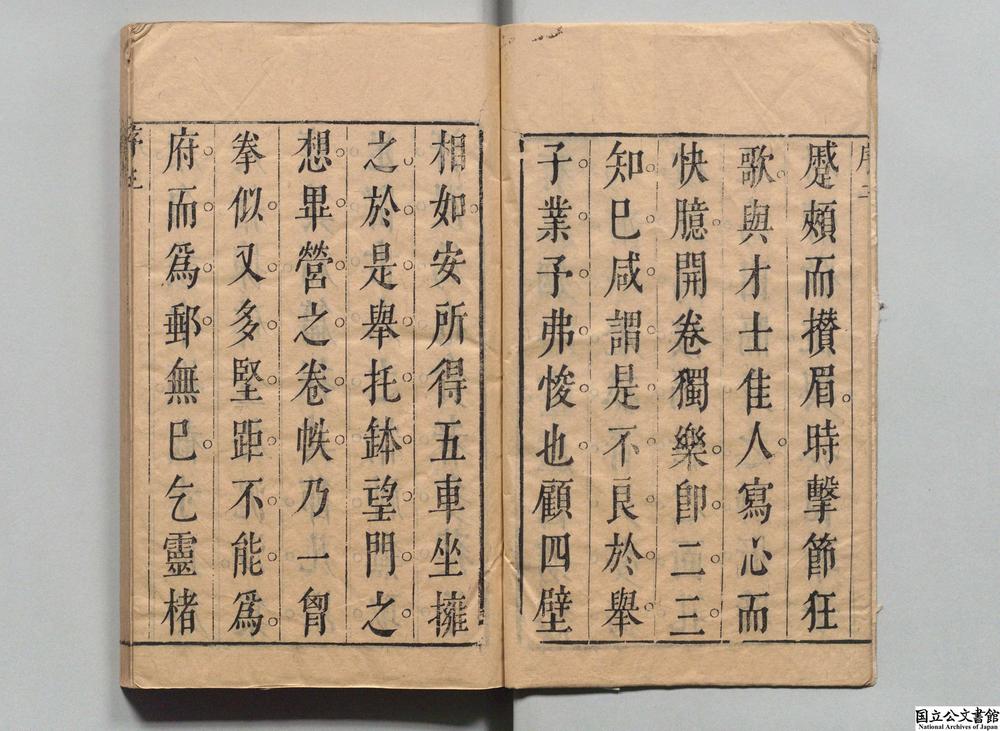 序二
蹙頞而攢眉時擊節狂
歌與才士佳人寫心而
快臆開卷獨樂即二三
知巳咸謂是不良於舉
子業予弗悛也顧四壁
相如安所得五車坐擁
之於是舉托鉢望門之
想畢營之卷帙乃一曾
拳似又多堅距不能爲
府而爲郵無巳乞靈楮
国立公文書館
National Archives of Japan